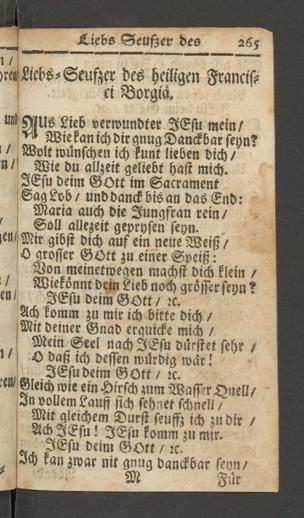 Liebs Seufzer des 265
Liebs-Seufzer des heiligen Francis-
ci Borgiä.
Aus Lieb verwundter JEsu mein /
Wie kan ich dir gnug Danckbar seyn?
Wolt wünschen ich kunt lieben dich /
Wie du allzeit geliebt hast mich.
JEsu deim GOtt im Sacrament
Sag Lob / und danck bis an das End:
Maria auch die Jungfrau rein /
Soll allezeit geprysen seyn.
Mir gibst dich auf ein neue Weiß /
O grosser GOtt zu einer Speiß:
Von meinetwegen machst dich klein /
Wie könnt dein Lieb noch grösser seyn?
JEsu deim GOtt / ꝛc.
Ach komm zu mir ich bitte dich /
Mit deiner Gnad erquicke mich /
Mein Seel nach JEsu dürstet sehr /
O daß ich dessen würdig wär!
JEsu deim GOtt / ꝛc.
Gleich wie ein Hirsch zum Wasser Quell /
In vollem Lauff sich sehnet schnell /
Mit gleichem Durst seuffz ich zu dir /
Ach JEsu! JEsu komm zu mir.
JEsu deim GOtt / ꝛc.
Ich kan zwar nie gnug danckbar seyn /
M Für